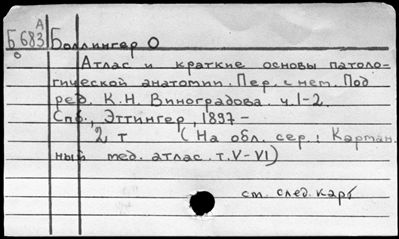 А
Б 683 Боллингер О
8
Атлас и краткие основы патоло-
гической анатомии. Пер. с нем. Под
ред. К.Н. Виноградова. ч.1-2.
Спб., Эттингер, 1897-
2 т (На обл. сер.: Карман.
ный мед. атлас. т.V-VI)
см. след. карт